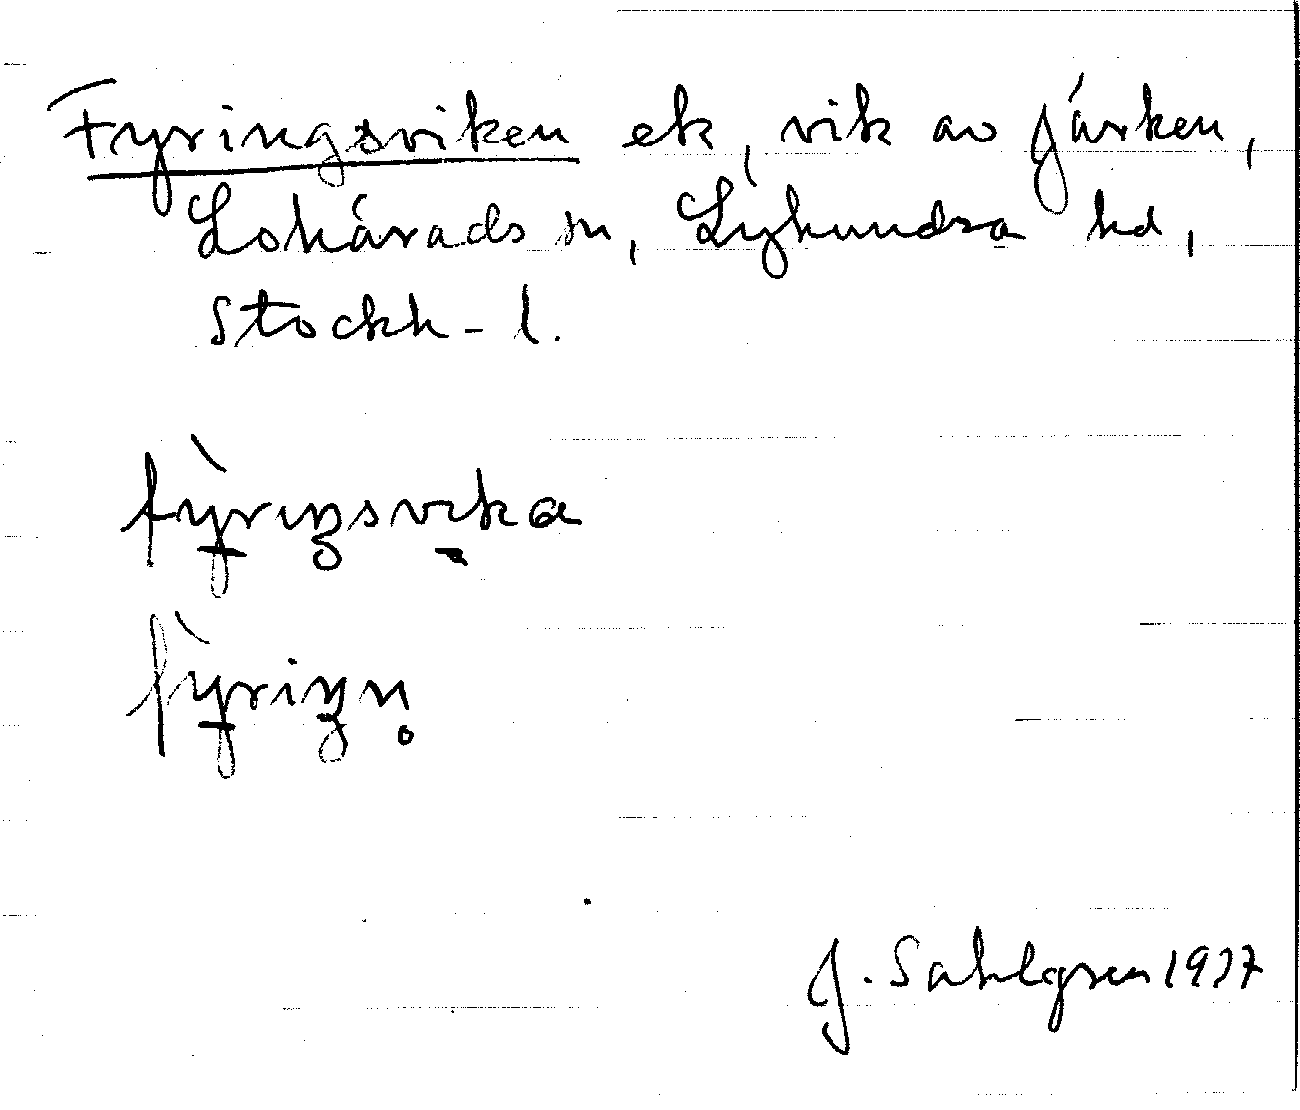 Fyringsviken ek, vik av Järken,
Lohärads sn, Lyhundra hd,
Stockh-l.
fỳriŋsvika
fỳriŋn̥
J. Sahlgren 1937